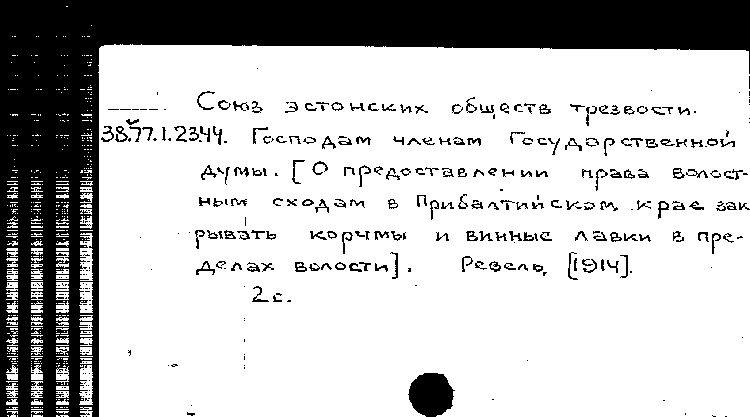 Союз эстонских обществ трезвости.
38.77.1.2344. Господам членам Государственной
думы. [О предоставлении права волост-
ным сходам в Прибалтийском крае зак
рывать корчмы и винные лавки в пре-
делах волости]. Ревель, [1914].
2 с.